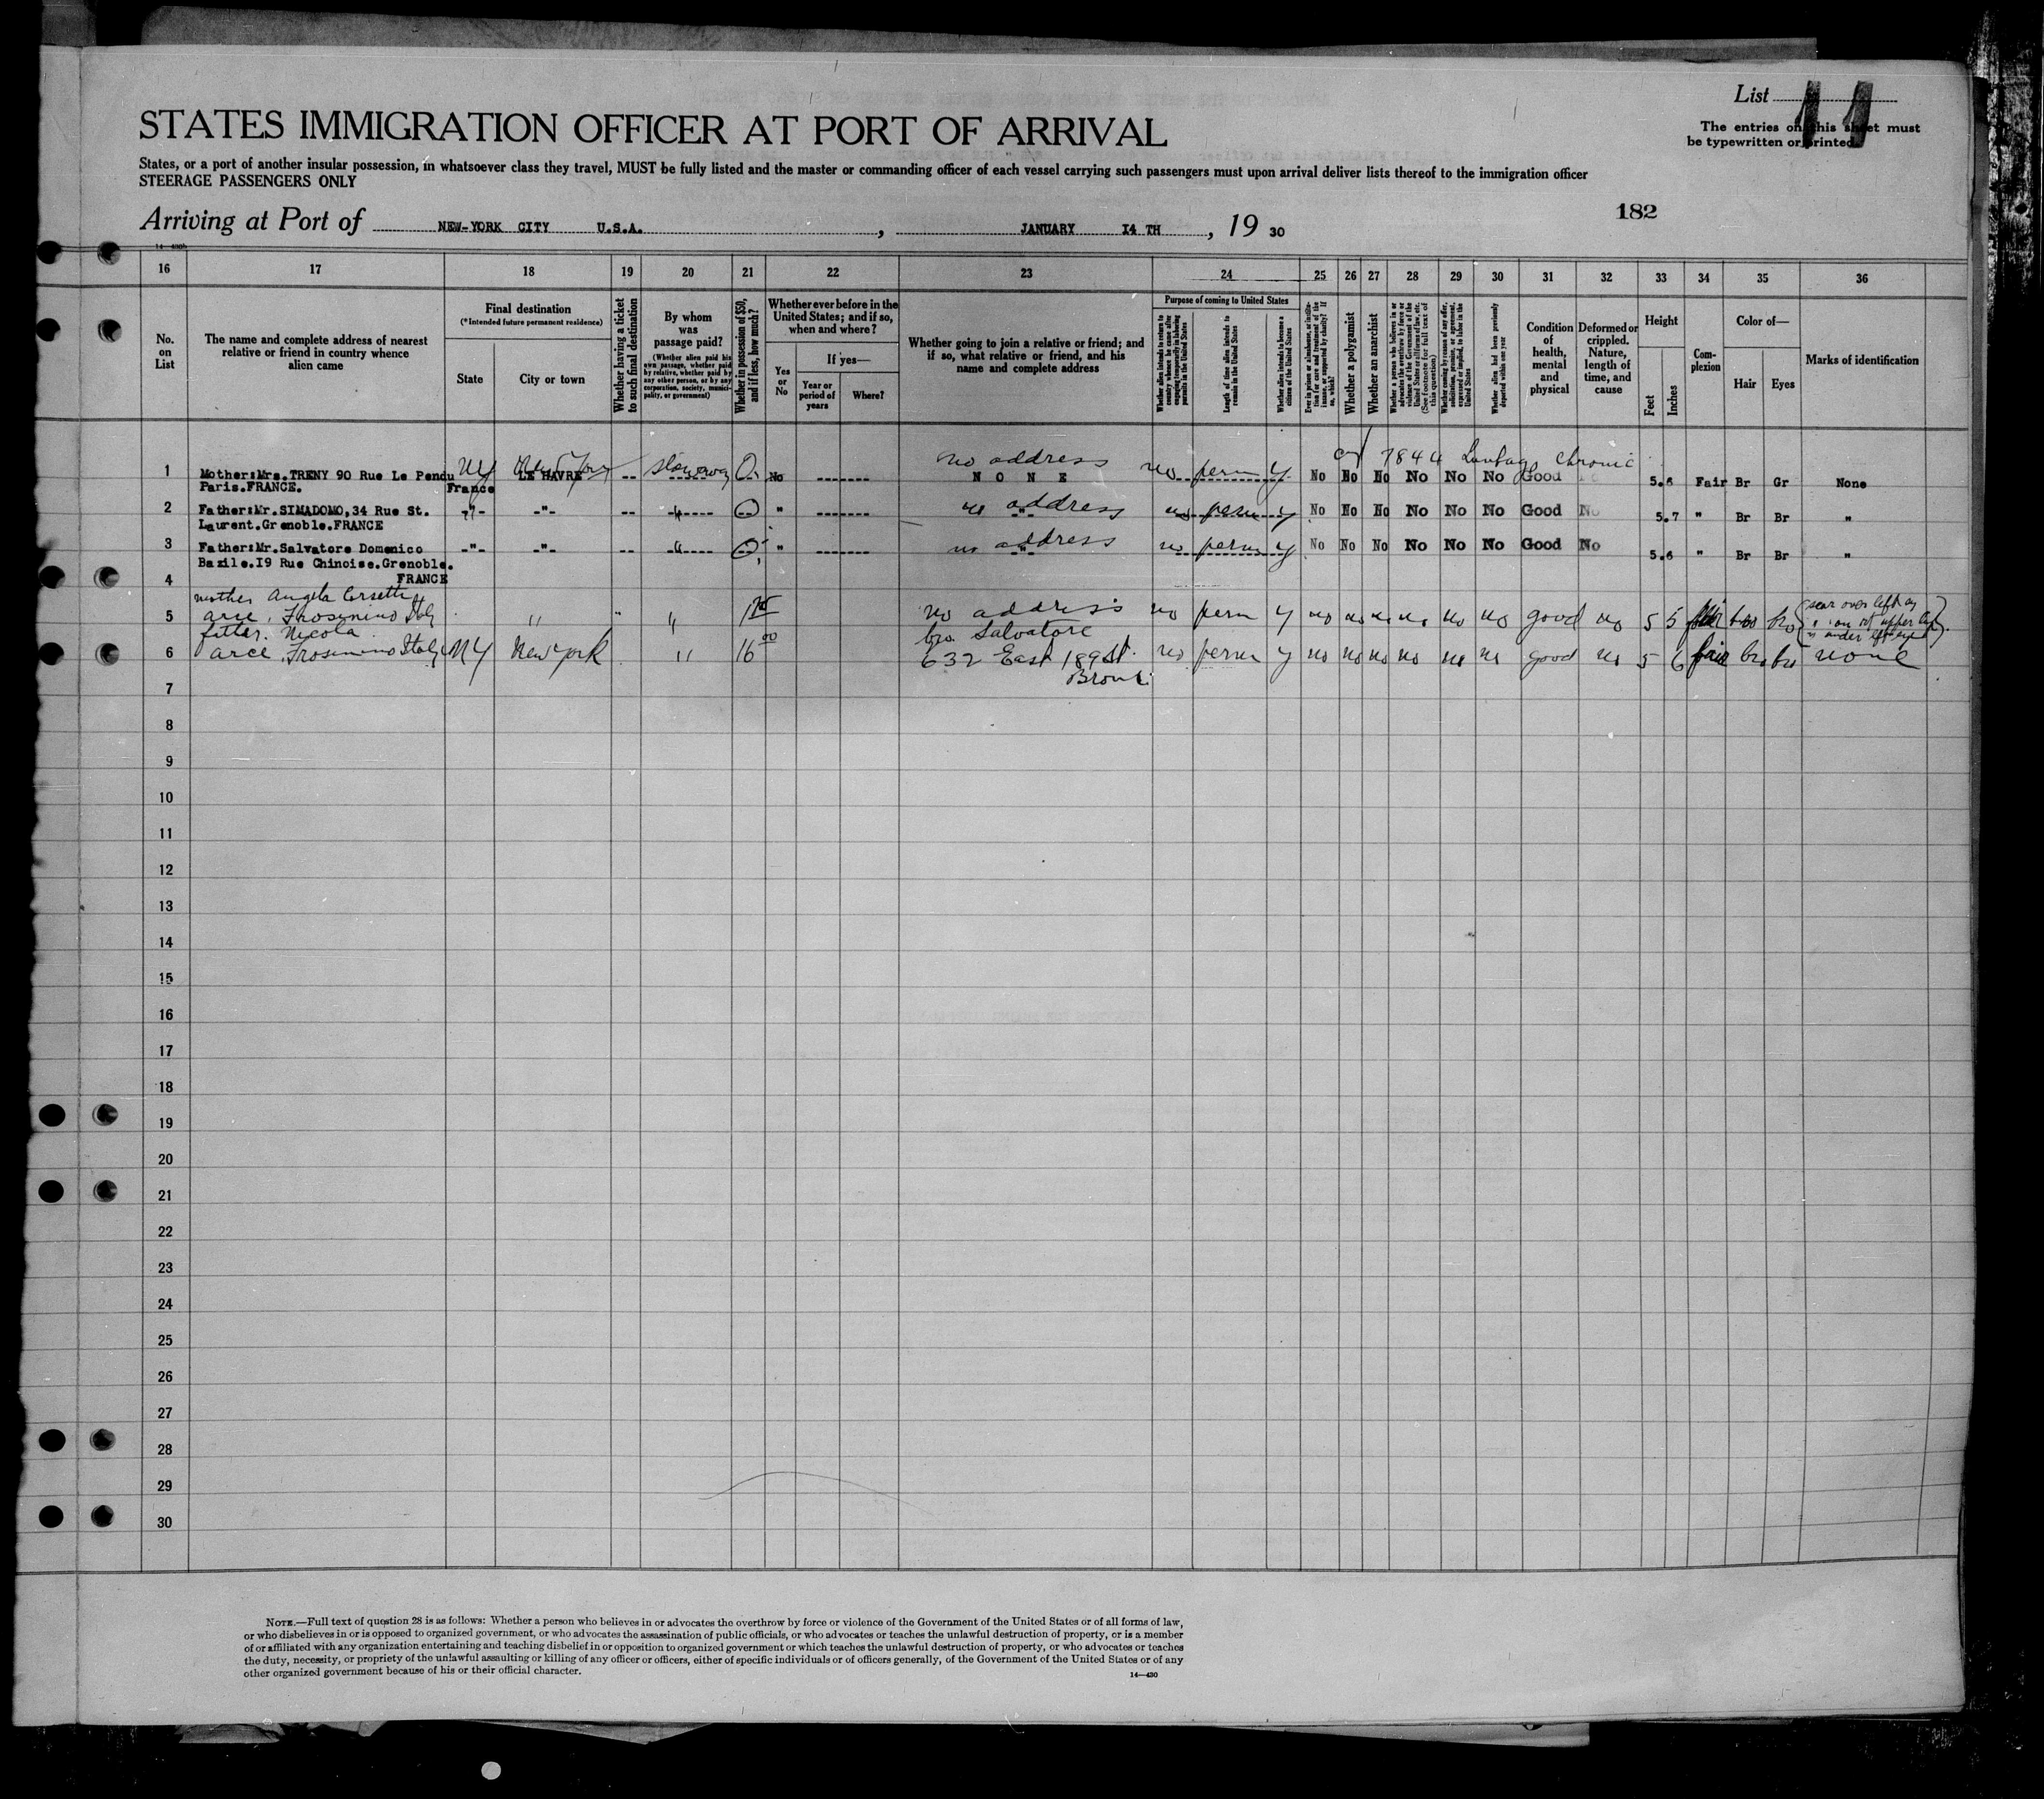 List 11
The entries on this sheet must
be typewritten or printed.
STATES IMMIGRATION OFFICER AT PORT OF ARRIVAL
States, or a port of another insular possession, in whatsoever class they travel, MUST be fully listed and the master or commanding officer of each vessel carrying such passengers must upon arrival deliver lists thereof to the immigration officer
STEERAGE PASSENGERS ONLY
182
Arriving at Port of NEW-YORK CITY U.S.A. , JANUARY I4 TH , 19 30
14—430b
16 17 18 19 20 21 22 23 24 25 26 27 28 29 30 31 32 33 34 35 36
No.
on
List
The name and complete address of nearest
relative or friend in country whence
alien came
Final destination
(*Intended future permanent residence)
State
City or town
Whether having a ticket
to such final destination
By whom
was
passage paid?
(Whether alien paid his
own passage, whether paid
by relative, whether paid by
any other person, or by any
corporation, society, munici-
pality, or government)
Whether in possession of $50,
and if less, how much?
Whether ever before in the
United States; and if so,
when and where?
Yes
or
No
If yes—
Year or
period of
years
Where?
Whether going to join a relative or friend; and
if so, what relative or friend, and his
name and complete address
Purpose of coming to United States
Whether alien intends to return to
country whence he came after
engaging temporarily in laboring
pursuits in the United States
Length of time alien intends to
remain in the United States
Whether coming to become a
citizen of the United States
Ever in prison or almshouse, or institu-
tion for care and treatment of the
insane, or supported by charity? If
so, which?
Whether a polygamist
Whether an anarchist
Whether a person who believes in or
advocates the overthrow by force or
violence of the Government of the
United States or all forms of law, etc.
(See footnote for full text of
this question)
Whether coming by reason of any offer,
solicitation, promise, or agreement,
expressed or implied, to labor in the
United States
Whether alien had been previously
deported within one year
Condition
of
health,
mental
and
physical
Deformed or
crippled.
Nature,
length of
time, and
cause
Height
Feet
Inches
Com-
plexion
Color of—
Hair
Eyes
Marks of identification
1 Mother:Mrs.TRENY 90 Rue Le Pendu NY New York LE HAVRE -- stowaway 0 No no address NONE no perm y No No No No No No Good 5.6 Fair Br Gr None
7844 chronic
Paris.FRANCE. France
2 Father:Mr.SIMADOMO,34 Rue St. -"- -"- -- " 0 " no address -"- no perm y No No No No No No Good No 5.7 " Br Br "
Laurent.Grenoble.FRANCE
3 Father:Mr.Salvatore Domenico -"- -"- -- " 0 " no address -"- no perm y No No No No No No Good No 5.6 " Br Br "
Bazile.I9 Rue Chinoise.Grenoble.
4 FRANCE
mother Angela Corsetti
5 arce, Frosinino Italy " " " no address no perm y no no no no no no good no 5 5 fair bro bro scar over left
father. Nicola bro Salvatore
6 arce, Frosinino Italy NY New York " 16 00 632 East 189 St. no perm y no no no no no no good no 5 6 fair bro bro none
Bronx
7
8
9
10
11
12
13
14
15
16
17
18
19
20
21
22
23
24
25
26
27
28
29
30
NOTE.—Full text of question 28 is as follows: Whether a person who believes in or advocates the overthrow by force or violence of the Government of the United States or of all forms of law,
or who disbelieves in or is opposed to organized government, or who advocates the assassination of public officials, or who advocates or teaches the unlawful destruction of property, or is a member
of or affiliated with any organization entertaining and teaching disbelief in or opposition to organized government or which teaches the unlawful destruction of property, or who advocates or teaches
the duty, necessity, or propriety of the unlawful assaulting or killing of any officer or officers, either of specific individuals or of officers generally, of the Government of the United States or of any
other organized government because of his or their official character.
14—430